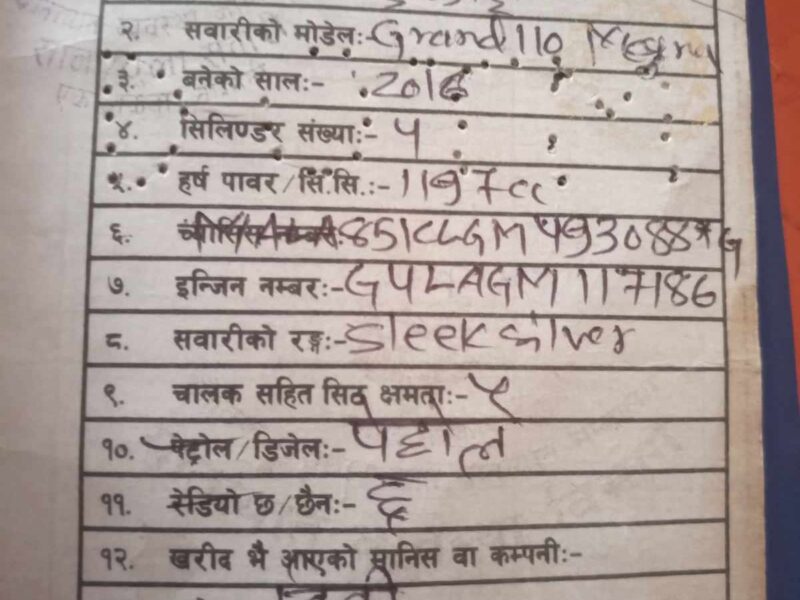 २. सवारीको मोडेल:- Grand I10 Magna
३. बनेको साल:- 2016
४. सिलिण्डर संख्या:- ५
५. हर्ष पावर/सि.सि.:- 1197cc
६. 851CLGM493088*G
७. इन्जिन नम्बर:- G4LAGM117186
८. सवारीको रङ्ग:- Sleek silver
९. चालक सहित सिट क्षमता:- ५
१०. पेट्रोल/डिजेल:-
११. रेडियो छ/छैन:- छ
१२. खरीद भै आएको मानिस वा कम्पनी:-